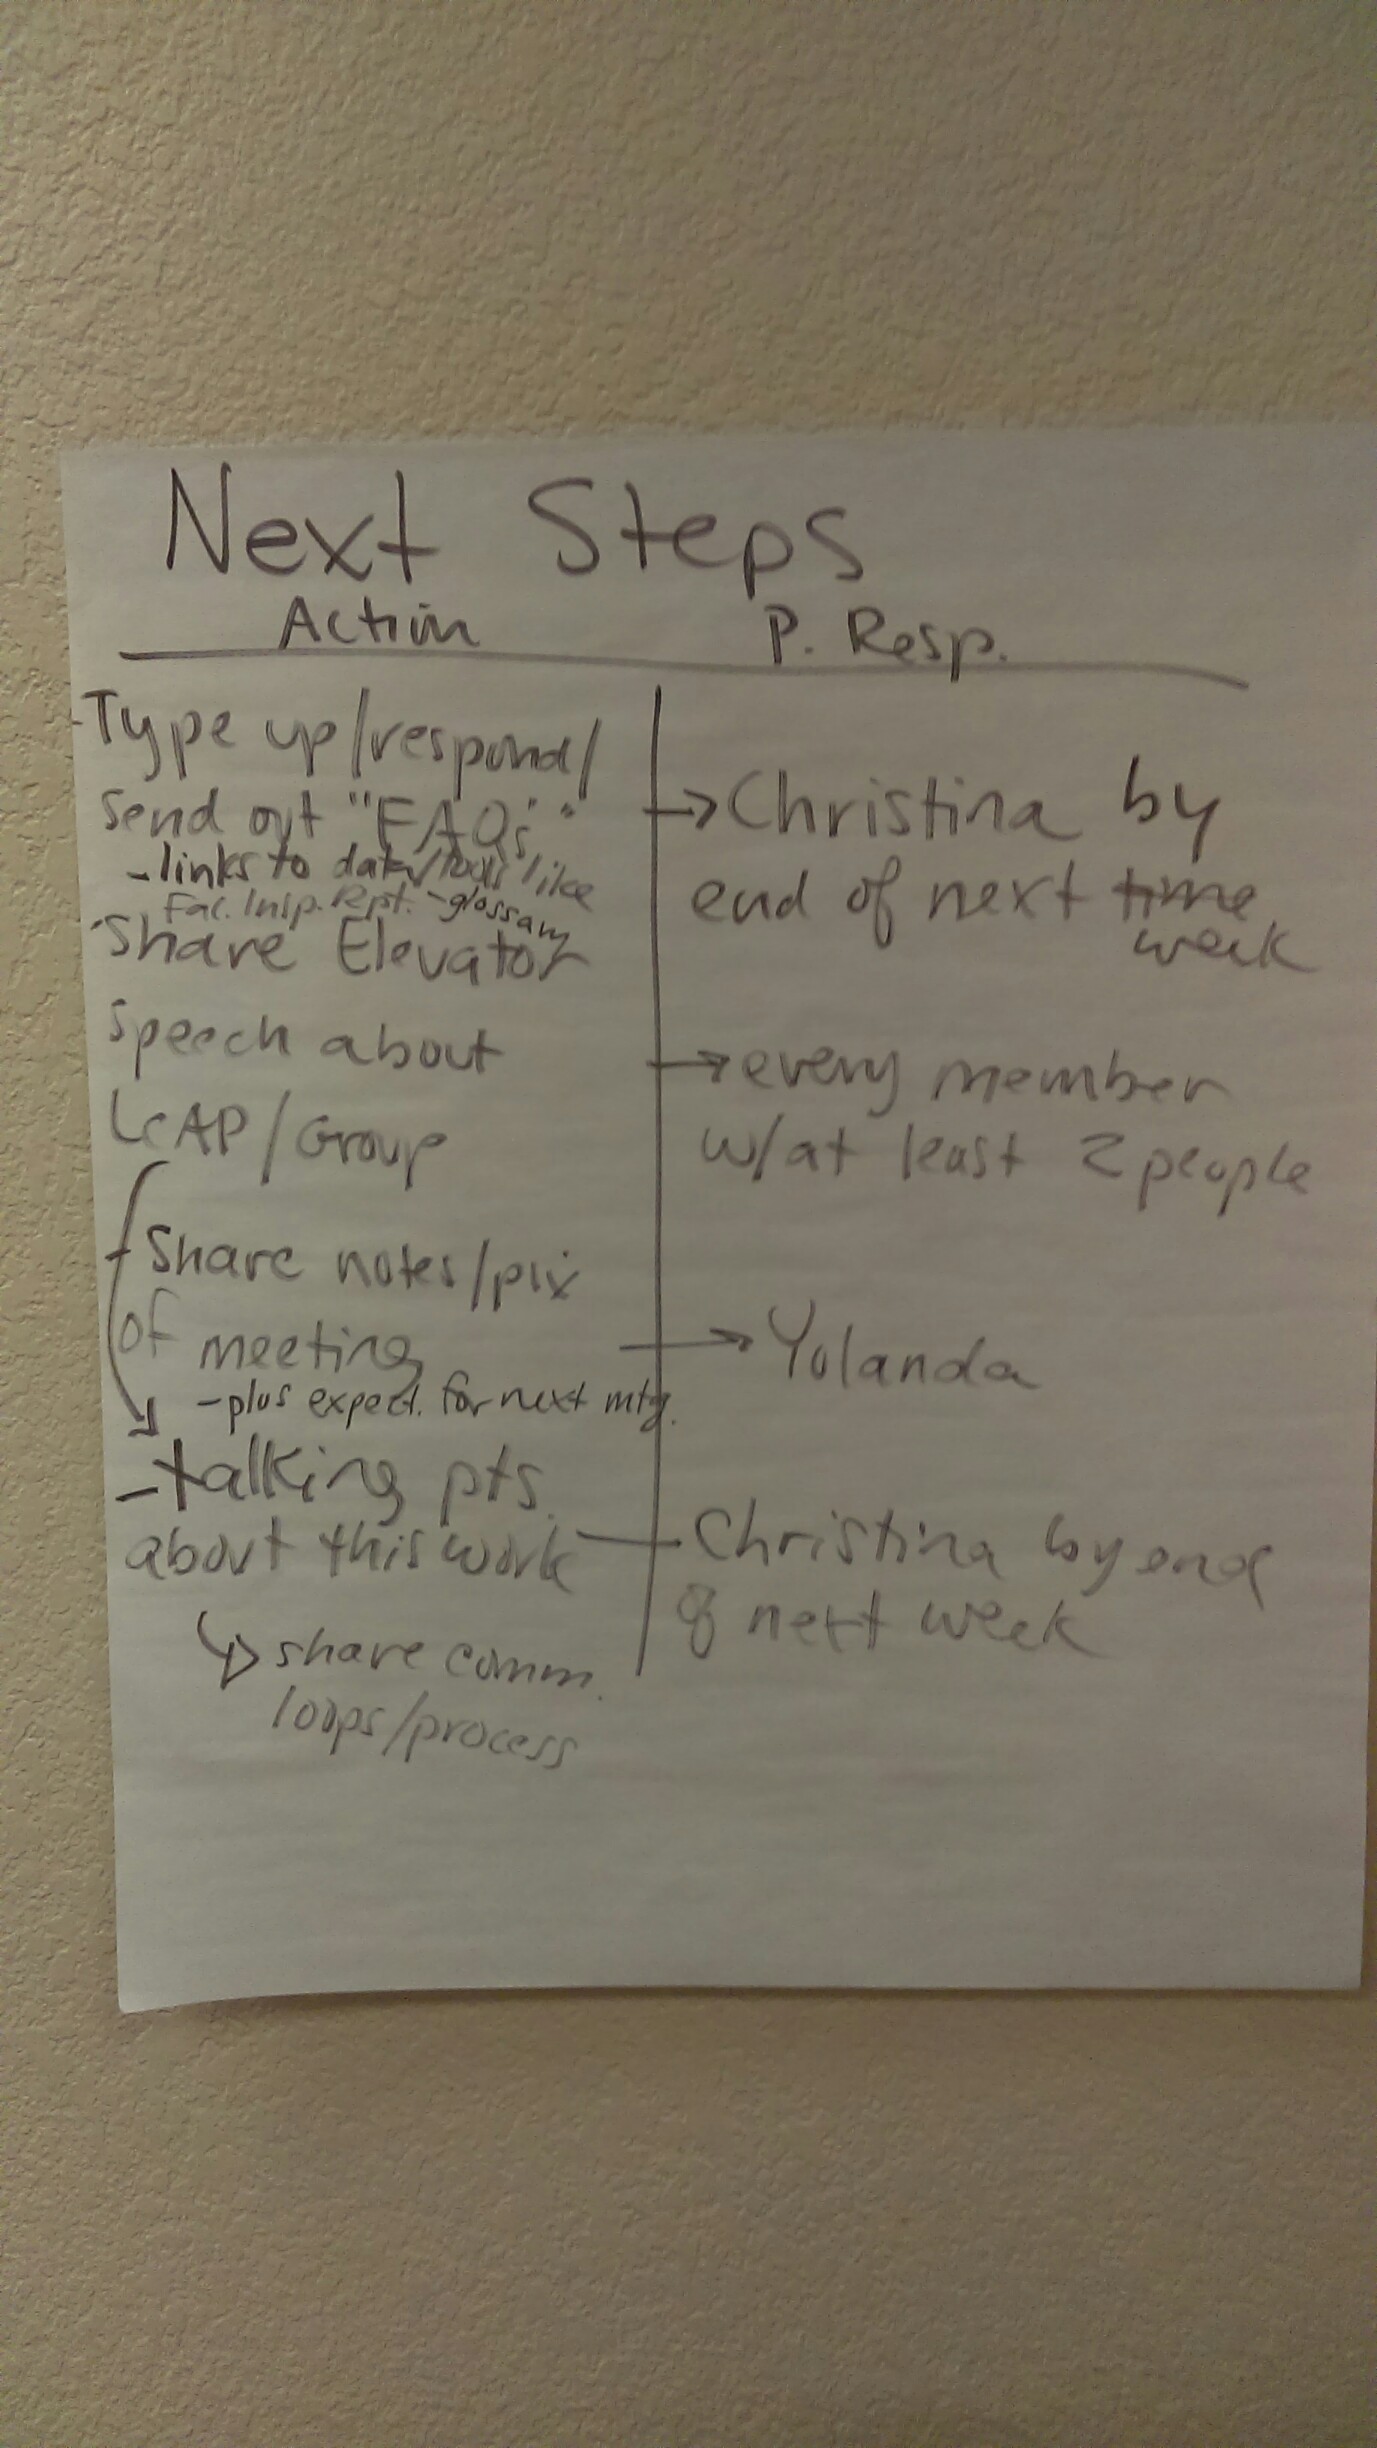 Next Steps
Action P. Resp.
-Type up/respond/
Send out "FAQs"
-links to data/tools like
Fac. Insp. Rept. -glossary
-Share Elevator
Speech about
LCAP/Group
-Share notes/pix
of meeting
-plus expect. for next mtg.
-talking pts.
about this work
share comm.
loops/process
→Christina by
end of next time
week
→every member
w/at least 2 people
→Yolanda
Christina by end
of next week